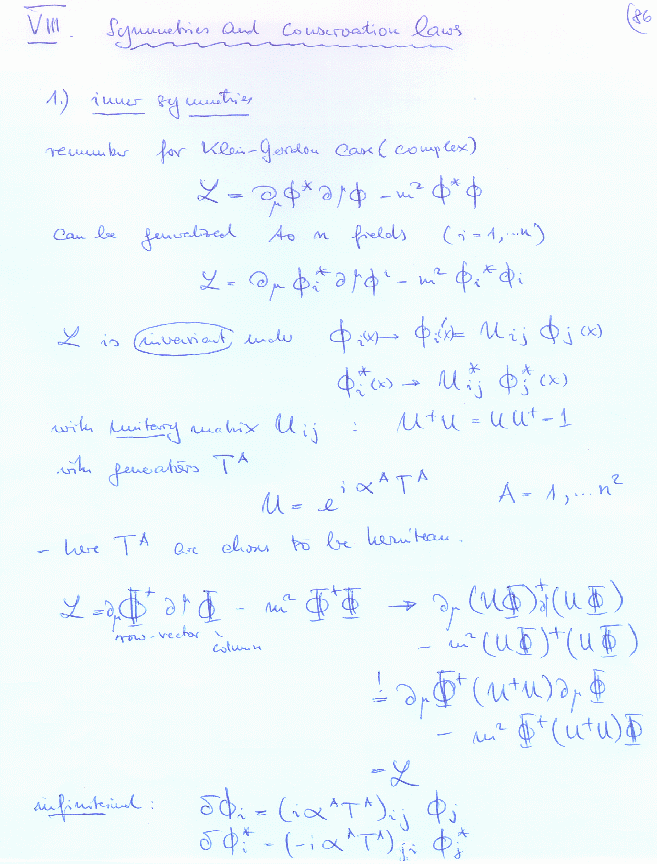 VIII. Symmetries and Conservation laws (86
1.) inner symmetries
remember for Klein-Gordon case (complex)
ℒ = ∂_μ ϕ* ∂^μ ϕ - m² ϕ* ϕ
can be generalized to n fields (i = 1,...n)
ℒ = ∂_μ ϕ_i* ∂^μ ϕ^i - m² ϕ_i* ϕ_i
ℒ is invariant under ϕ_i(x) → ϕ_i'(x) = U_ij ϕ_j(x)
ϕ_i*(x) → U*_ij ϕ_j*(x)
with unitary matrix U_ij : U†U = UU† = 1
with generators T^A
U = e^{i α^A T^A} A = 1,...n²
- here T^A are chosen to be hermitean.
ℒ = ∂_μ Φ† ∂^μ Φ - m² Φ†Φ → ∂_μ (UΦ)† ∂^μ (UΦ)
row-vector column - m² (UΦ)† (UΦ)
! = ∂_μ Φ† (U†U) ∂_μ Φ
- m² Φ† (U†U) Φ
= ℒ
infinitesimal : δϕ_i = (i α^A T^A)_ij ϕ_j
δϕ_i* = (-i α^A T^A)_ji ϕ_j*